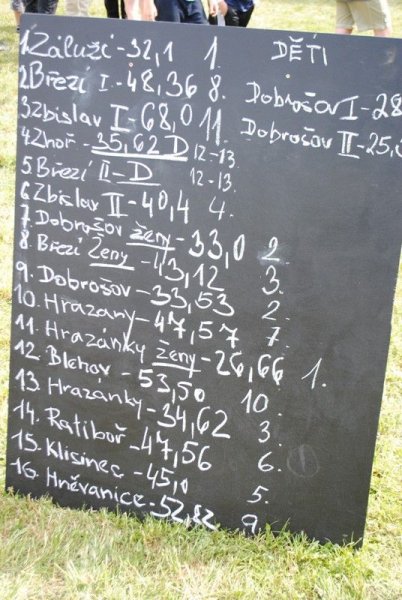 1. Záluží - 32,1 1.
2. Březí I. - 48,36 8.
3. Zbislav I - 68,0 11.
4. Zhoř - 35,62 D 12-13.
5. Březí II - D 12-13.
6. Zbislav II - 40,4 4.
7. Dobrošov ženy - 33,0 2.
8. Březí Ženy - 43,12 3.
9. Dobrošov - 33,53 2.
10. Hrazany - 47,57 7.
11. Hrazánky ženy - 26,66 1.
12. Blehov - 53,50 10.
13. Hrazánky - 34,62 3.
14. Ratiboř - 47,56 6.
15. Klisinec - 45,0 5.
16. Hněvanice - 52,82 9.
DĚTI
Dobrošov I - 28
Dobrošov II - 25,